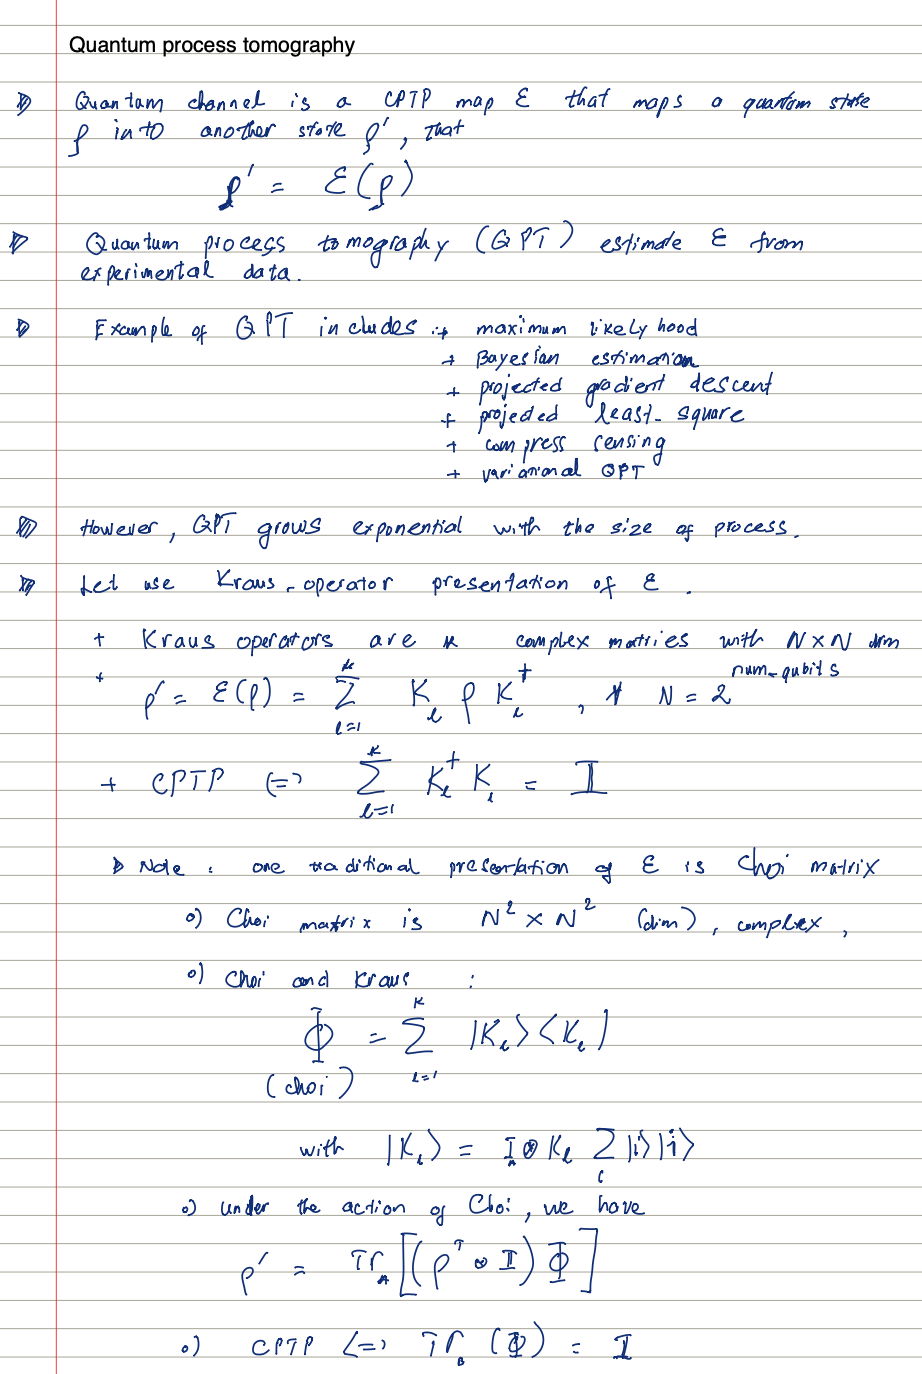 Quantum process tomography
Quantam channel is a CPTP map ℰ that maps a quantam state
ρ into another state ρ', that
ρ' = ℰ(ρ)
Quantum process tomography (QPT) estimate ℰ from
experimental data.
Example of QPT includes : + maximum likelyhood
+ Bayesian estimation
+ projected gradient descent
+ projected least-square
+ compress sensing
+ variational QPT
However, QPT grows exponential with the size of process.
Let use Kraus-operator presentation of ℰ .
+ Kraus operators are complex matries with N×N dim
+ ρ' = ℰ(ρ) = Σ_{l=1}^{k} K_l ρ K_l^† , N = 2^{num_qubits}
+ CPTP <=> Σ_{l=1}^{k} K_l^† K_l = I
Note : one traditional presentation of ℰ is Choi matrix
o) Choi matrix is N² × N² (dim), complex,
o) Choi and Kraus :
Φ = Σ_{l=1}^{k} |K_l> <K_l|
(choi)
with |K_l> = I_A ⊗ K_l Σ_i |i>|i>
o) under the action of Choi, we have
ρ' = Tr_A [(ρ^T ⊗ I) Φ]
o) CPTP <=> Tr_B (Φ) = I